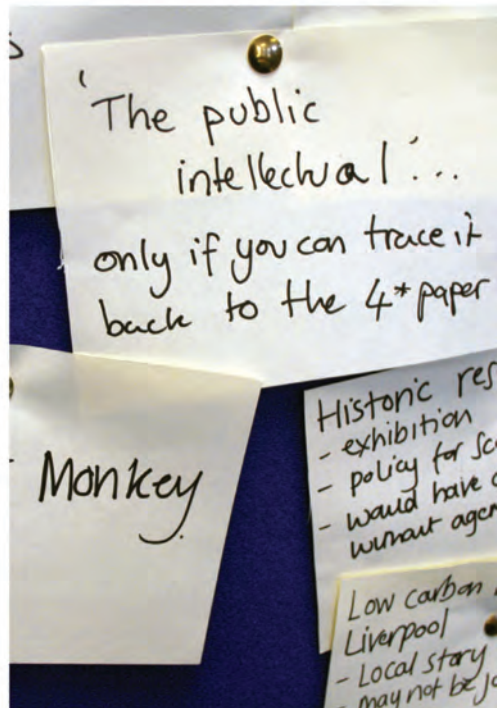 'The public
intellectual'...
only if you can trace it
back to the 4* paper
Monkey
Historic
- exhibition
- policy for
- would have
without
Low carbon
Liverpool
- Local story
- may not be